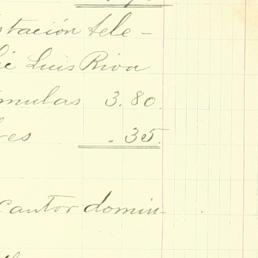 stación tele-
Luis Riva
mulas 3.80
res .35
cantor domin